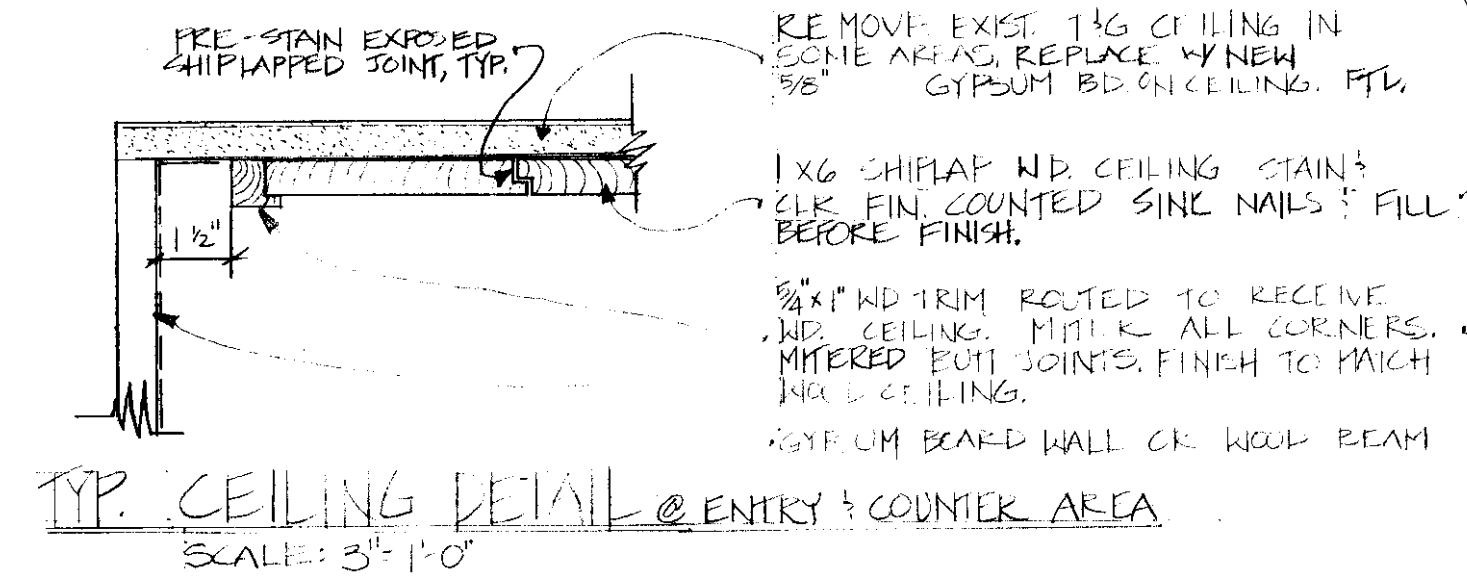 PRE-STAIN EXPOSED
SHIPLAPPED JOINT, TYP.
REMOVE EXIST. T&G CEILING IN
SOME AREAS, REPLACE W/ NEW
5/8" GYPSUM BD. ON CEILING. FTL.
1X6 SHIPLAP WD. CEILING STAIN &
CLR FIN. COUNTED SINK NAILS & FILL
BEFORE FINISH.
1 1/2"
5/4"x1" WD TRIM ROUTED TO RECEIVE
WD. CEILING. MITER ALL CORNERS.
MITERED BUTT JOINTS. FINISH TO MATCH
WOOD CEILING.
GYPSUM BOARD WALL OR WOOD BEAM
TYP. CEILING DETAIL @ ENTRY & COUNTER AREA
SCALE: 3"=1'-0"